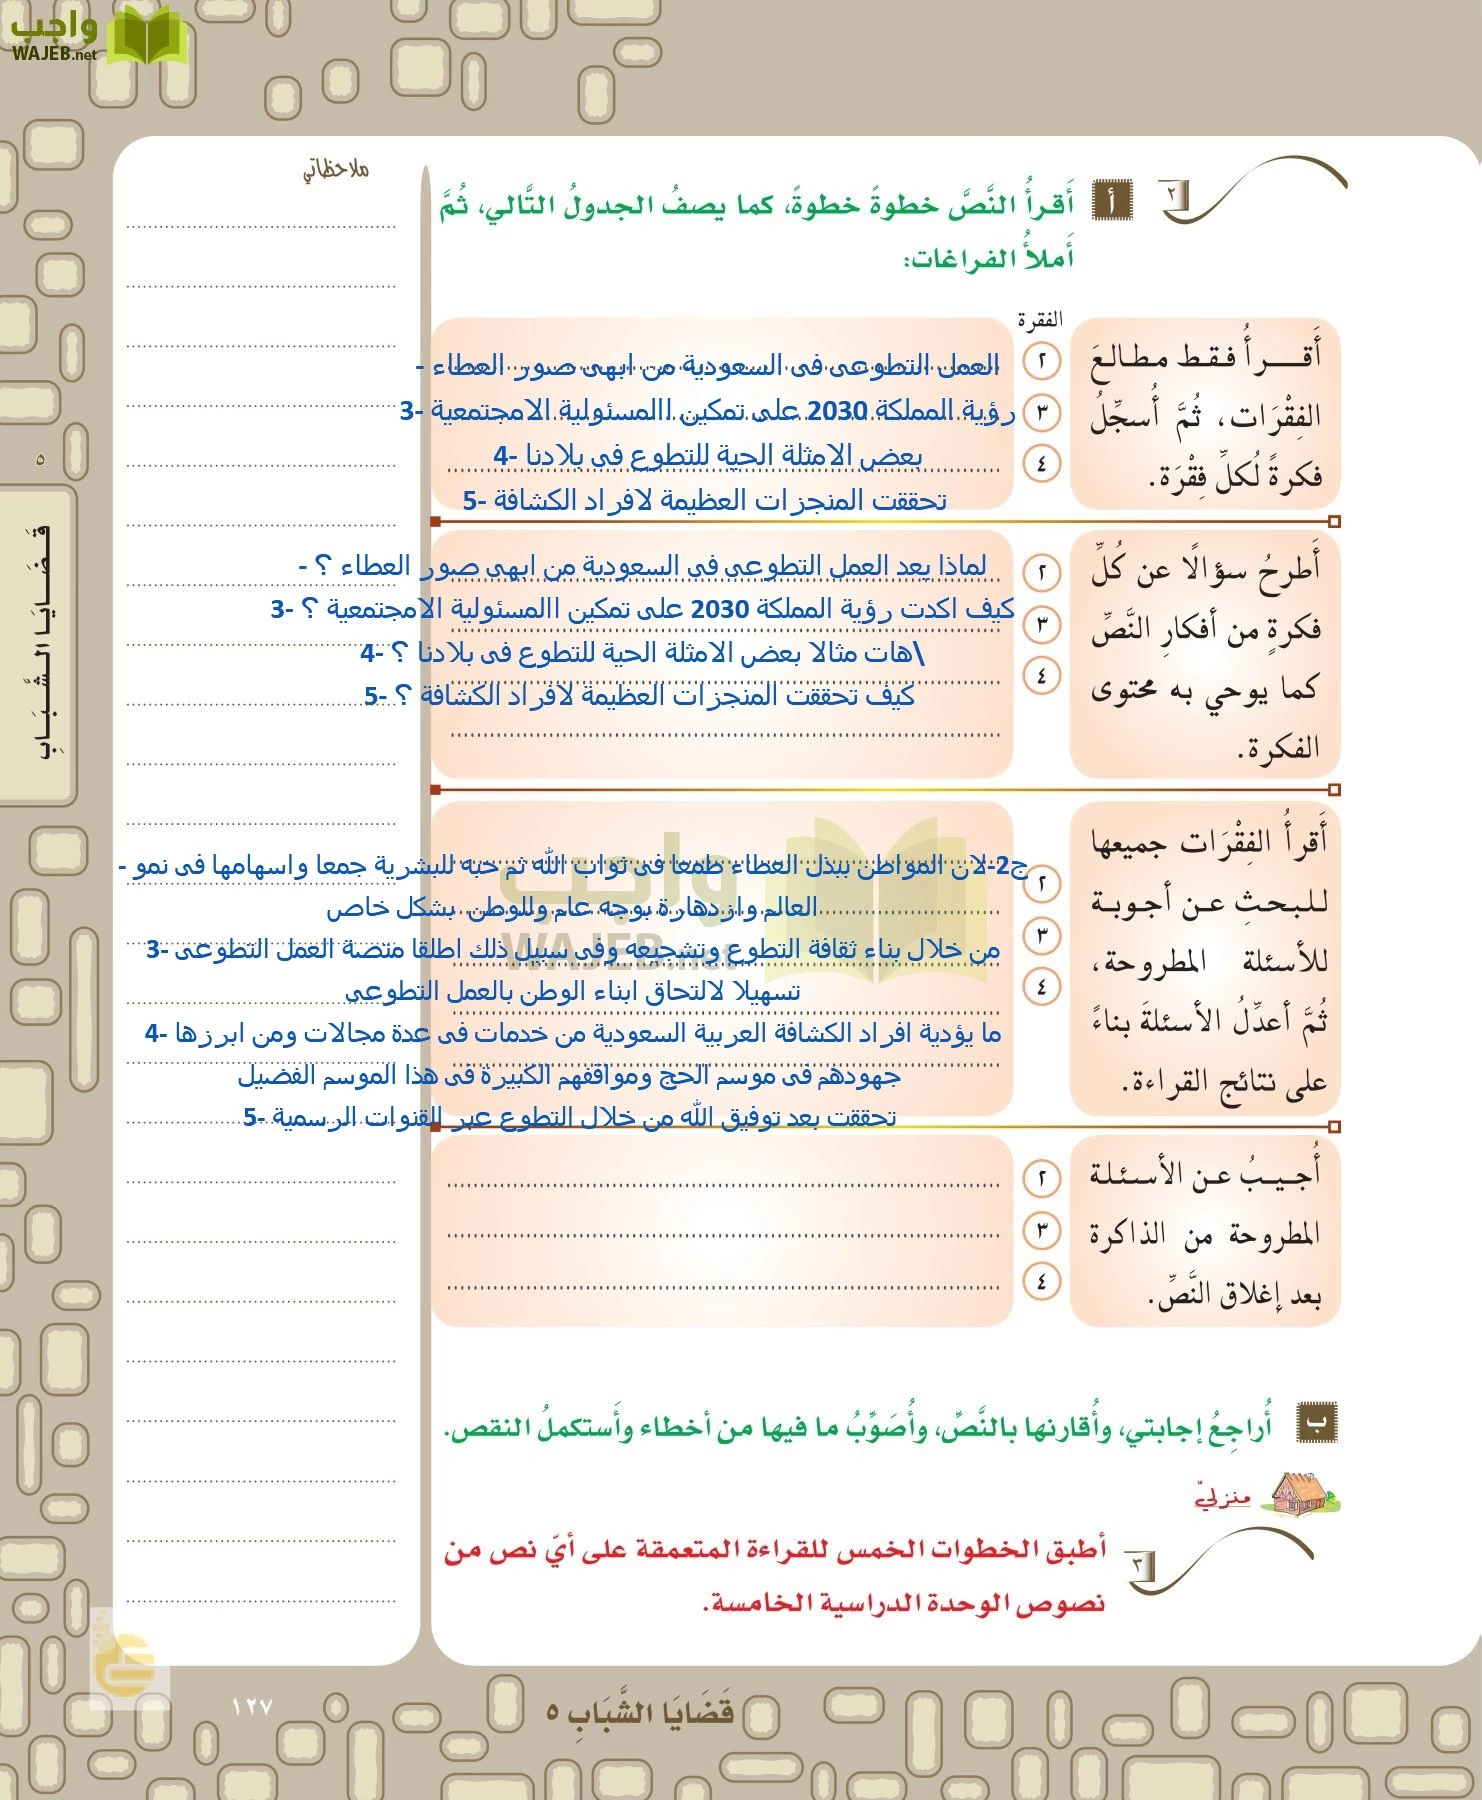 واجب
WAJEB.net
ملاحظاتي
٢
أ
أَقـرأُ النَّصَّ خطوةً خطوةً، كما يصفُ الجدولُ التَّالي، ثُمَّ
أَملأُ الفراغات:
الفقرة
أَقـــرأُ فـقـط مـطـالـعَ
الفِقْرَات، ثُمَّ أُسجِّلُ
فكرةً لُكلِّ فِقْرَة.
٢
٣
٤
العمل التطوعى فى السعودية من ابهى صور العطاء -
رؤية المملكة 2030 على تمكين االمسئولية الامجتمعية -3
بعض الامثلة الحية للتطوع فى بلادنا -4
تحققت المنجزات العظيمة لافراد الكشافة -5
أَطرحُ سؤالًا عن كُلِّ
فكرةٍ من أفكارِ النَّصِّ
كما يوحي به محتوى
الفكرة.
٢
٣
٤
لماذا يعد العمل التطوعى فى السعودية من ابهى صور العطاء ؟ -
كيف اكدت رؤية المملكة 2030 على تمكين االمسئولية الامجتمعية ؟ -3
\هات مثالا بعض الامثلة الحية للتطوع فى بلادنا ؟ -4
كيف تحققت المنجزات العظيمة لافراد الكشافة ؟ -5
أَقرأُ الفِقْرَات جميعها
للبحثِ عن أجوبة
للأسئلة المطروحة،
ثُمَّ أعدِّلُ الأسئلةَ بناءً
على نتائج القراءة.
٢
٣
٤
ج2-لان المواطن ببذل العطاء طمعا فى ثواب الله ثم حبه للبشرية جمعا واسهامها فى نمو -
العالم وازدهارة بوجه عام وللوطن بشكل خاص
من خلال بناء ثقافة التطوع وتشجيعه وفى سبيل ذلك اطلقا منصة العمل التطوعى -3
تسهيلا لالتحاق ابناء الوطن بالعمل التطوعى
ما يؤدية افراد الكشافة العربية السعودية من خدمات فى عدة مجالات ومن ابرزها -4
جهودهم فى موسم الحج ومواقفهم الكبيرة فى هذا الموسم الفضيل
تحققت بعد توفيق الله من خلال التطوع عبر القنوات الرسمية -5
أُجـيـبُ عـن الأسـئـلـة
المطروحة من الذاكرة
بعد إغلاق النَّصِّ.
٢
٣
٤
واجب
WAJEB.net
ب
أُراجِعُ إجابتي، وأُقارنها بالنَّصِّ، وأُصَوِّبُ ما فيها من أخطاء وأَستكملُ النقص.
منزليّ
٣
أطبق الخطوات الخمس للقراءة المتعمقة على أيّ نص من
نصوص الوحدة الدراسية الخامسة.
٥
قَـضَـايَـا الـشَّـبَـابِ
قَضَايَا الشَّبَابِ ٥
١٢٧